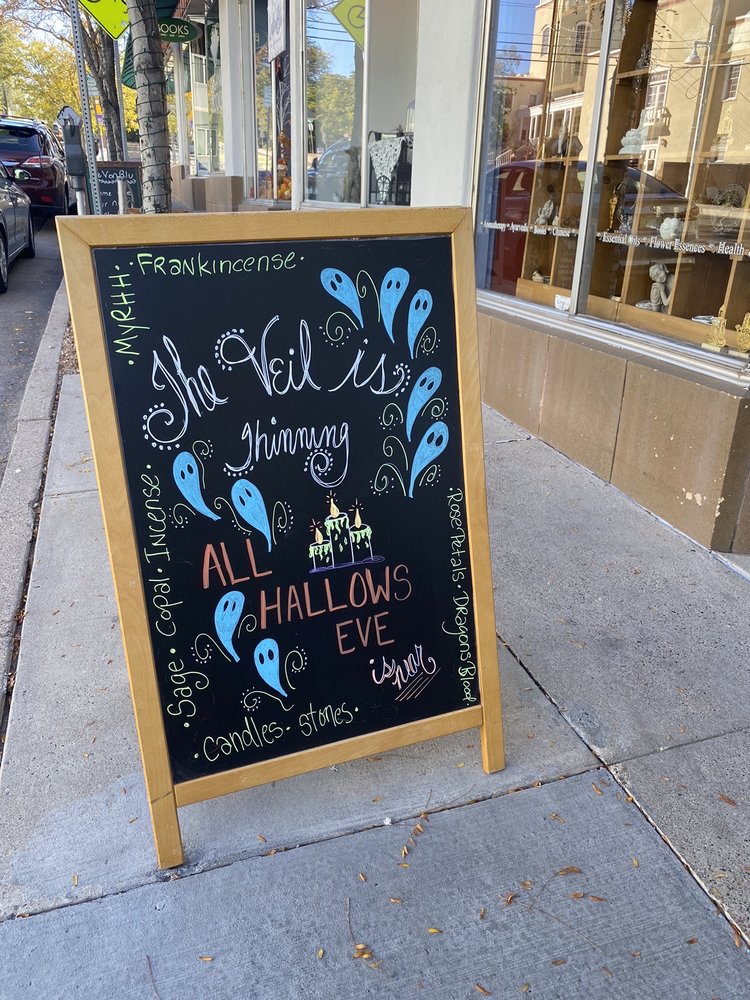 BOOKS
• Frankincense •
• Myrrh •
The Veil is
Thinning
ALL
HALLOWS
EVE
is near
• Sage • Copal • Incense •
• Rose Petals • Dragons Blood •
• candles • stones •
Aromatherapy * Ayurvedic * Books * Chinese *
Essential Oils * Flower Essences * Health